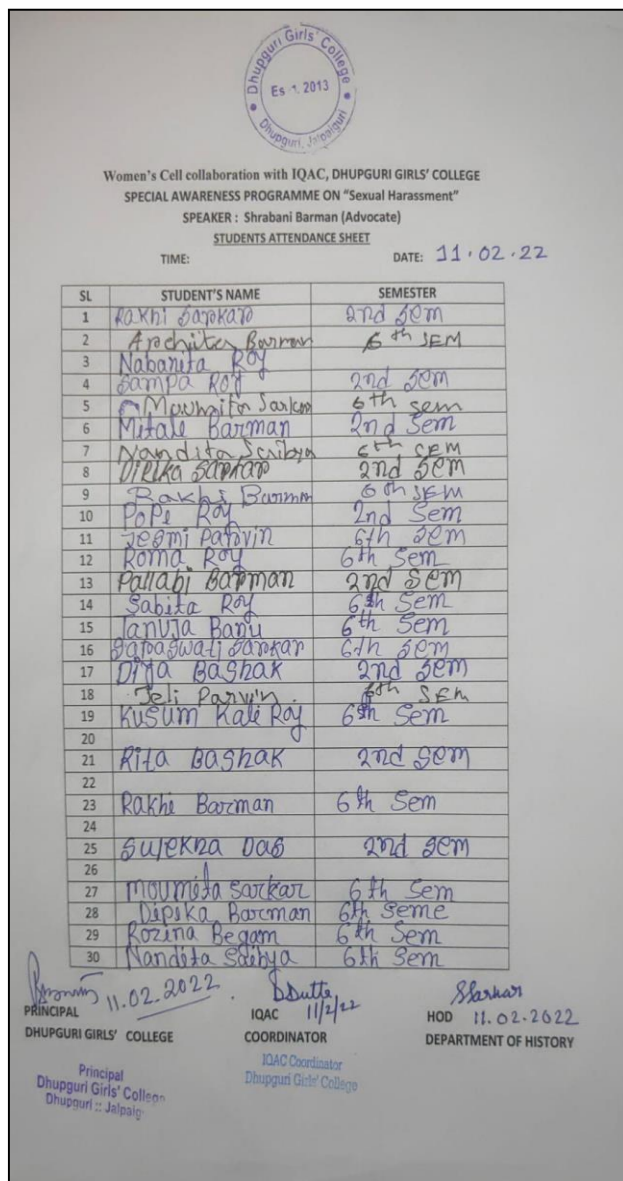 Dhupguri Girls' College
Es 1. 2013
Dhupguri, Jalpaiguri
Women's Cell collaboration with IQAC, DHUPGURI GIRLS' COLLEGE
SPECIAL AWARENESS PROGRAMME ON "Sexual Harassment"
SPEAKER : Shrabani Barman (Advocate)
STUDENTS ATTENDANCE SHEET
TIME: DATE: 11.02.22
SL STUDENT'S NAME SEMESTER
1 Rakhi Sarkar 2nd sem
2 Archita Barman 6th SEM
3 Nabanita Roy
4 Sampa Roy 2nd sem
5 Moumita Sarkar 6th sem
6 Mitale Barman 2nd Sem
7 Nandita Saibya 6th sem
8 Dipika Sarkar 2nd sem
9 Rakhi Barman 6th SEM
10 Pope Roy 2nd Sem
11 Jesmi Parvin 6th sem
12 Roma Roy 6th Sem
13 Pallabi Barman 2nd Sem
14 Sabita Roy 6th Sem
15 Tanuja Banu 6th Sem
16 Saraswati Sarkar 6th sem
17 Diya Bashak 2nd sem
18 Jeli Parvin. 6th SEM
19 Kusum Kali Roy 6th Sem
20
21 Rita Bashak 2nd sem
22
23 Rakhi Barman 6th Sem
24
25 Sulekha Das 2nd sem
26
27 Moumita Sarkar 6th Sem
28 Dipika Barman 6th Seme
29 Rozina Begam 6th Sem
30 Nandita Saibya 6th Sem
11.02.2022 DDutta 11/2/22 SSarkar
PRINCIPAL IQAC HOD 11.02.2022
DHUPGURI GIRLS' COLLEGE COORDINATOR DEPARTMENT OF HISTORY
Principal
Dhupguri Girls' College
Dhupguri :: Jalpaig
IQAC Coordinator
Dhupguri Girls' College